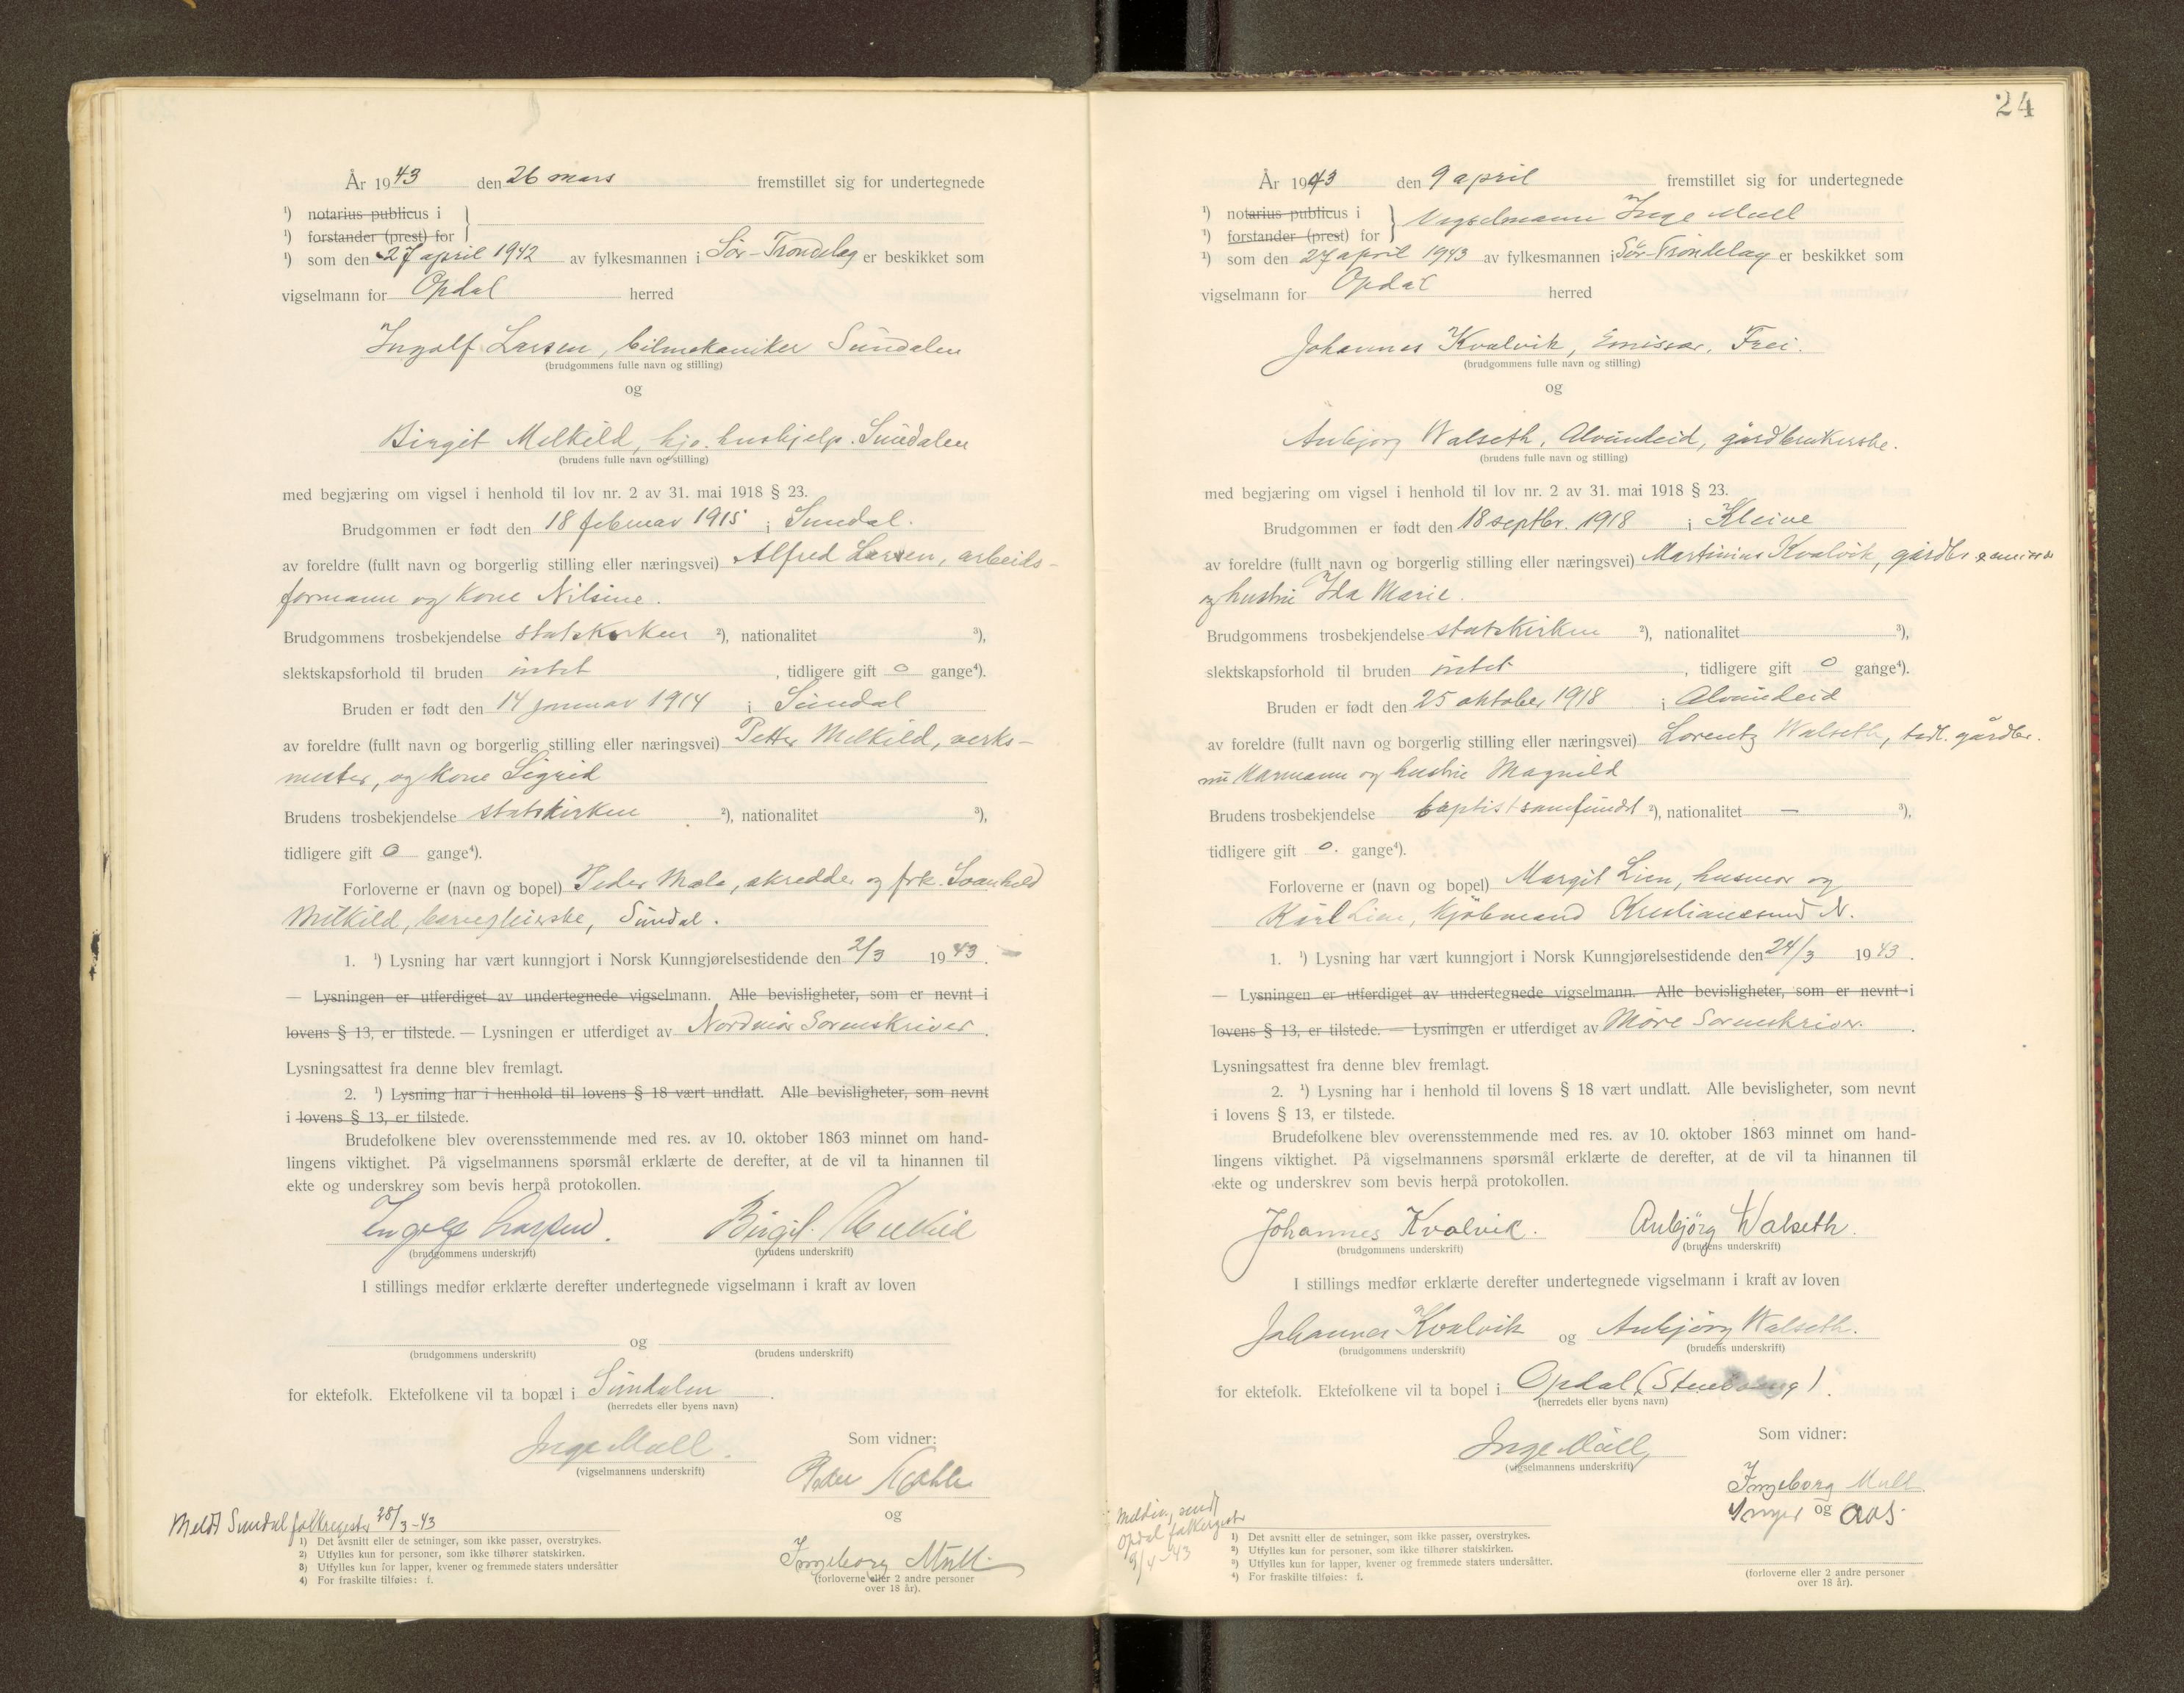 År 1943 den 26 mars fremstillet sig for undertegnede
¹) notarius publicus i
¹) forstander (prest) for
¹) som den 27 april 1942 av fylkesmannen i Sør-Trøndelag er beskikket som
vigselmann for Opdal herred
Ingolf Larsen, bilmekaniker Sundalen
(brudgommens fulle navn og stilling)
og
Birgit Melkild, hjp. hushjelp. Sundalen
(brudens fulle navn og stilling)
med begjæring om vigsel i henhold til lov nr. 2 av 31. mai 1918 § 23.
Brudgommen er født den 18 februar 1915 i Sundal.
av foreldre (fullt navn og borgerlig stilling eller næringsvei) Alfred Larsen, arbeids-
formann og kone Nilsine.
Brudgommens trosbekjendelse statskirken ²), nationalitet ³),
slektskapsforhold til bruden intet, tidligere gift 0 gange⁴).
Bruden er født den 14 januar 1914 i Sundal
av foreldre (fullt navn og borgerlig stilling eller næringsvei) Petter Melkild, verks-
mester, og kone Sigrid
Brudens trosbekjendelse statskirken ²), nationalitet ³),
tidligere gift 0 gange⁴).
Forloverne er (navn og bopel) Peder Mæle, skredder og frk. Svanhild
Melkild, barnepleierske, Sundal.
1. ¹) Lysning har vært kunngjort i Norsk Kunngjørelsestidende den 2/3 1943.
— Lysningen er utferdiget av undertegnede vigselmann. Alle bevisligheter, som er nevnt i
lovens § 13, er tilstede. — Lysningen er utferdiget av Nordmør Sorenskriver.
Lysningsattest fra denne blev fremlagt.
2. ¹) Lysning har i henhold til lovens § 18 vært undlatt. Alle bevisligheter, som nevnt
i lovens § 13, er tilstede.
Brudefolkene blev overensstemmende med res. av 10. oktober 1863 minnet om hand-
lingens viktighet. På vigselmannens spørsmål erklærte de derefter, at de vil ta hinannen til
ekte og underskrev som bevis herpå protokollen.
Ingolf Larsen. Birgit Melkild
(brudgommens underskrift) (brudens underskrift)
I stillings medfør erklærte derefter undertegnede vigselmann i kraft av loven
og
(brudgommens underskrift) (brudens underskrift)
for ektefolk. Ektefolkene vil ta bopæl i Sundalen.
(herredets eller byens navn)
Inge Mull.
(vigselmannens underskrift)
Som vidner:
Peder Mæhle
og
Ingeborg Mull.
(forloverne eller 2 andre personer
over 18 år).
Meldt Sundal folkregister 28/3-43
1) Det avsnitt eller de setninger, som ikke passer, overstrykes.
2) Utfylles kun for personer, som ikke tilhører statskirken.
3) Utfylles kun for lapper, kvener og fremmede staters undersåtter
4) For fraskilte tilføies: f.
24
År 1943 den 9 april fremstillet sig for undertegnede
¹) notarius publicus i
¹) forstander (prest) for
Vigselmann Inge Mull
¹) som den 27 april 1943 av fylkesmannen i Sør-Trøndelag er beskikket som
vigselmann for Opdal herred
Johannes Kvalvik, Emissær, Frei.
(brudgommens fulle navn og stilling)
og
Anbjørg Walseth, Alvundeid, gårdbrukerske.
(brudens fulle navn og stilling)
med begjæring om vigsel i henhold til lov nr. 2 av 31. mai 1918 § 23.
Brudgommen er født den 18 septbr. 1918 i Kleive
av foreldre (fullt navn og borgerlig stilling eller næringsvei) Martinius Kvalvik, gårdbr & emissær
og hustru Ida Marie.
Brudgommens trosbekjendelse statskirken ²), nationalitet ³),
slektskapsforhold til bruden intet, tidligere gift 0 gange⁴).
Bruden er født den 25 oktober 1918 i Alvundeid
av foreldre (fullt navn og borgerlig stilling eller næringsvei) Lorentz Walseth, tidl. gårdbr.
nu kårmann og hustru Magnild
Brudens trosbekjendelse baptistsamfundet ²), nationalitet — ³),
tidligere gift 0. gange⁴).
Forloverne er (navn og bopel) Margit Lien, husmor og
Karl Lien, kjøbmand Kristiansund N.
1. ¹) Lysning har vært kunngjort i Norsk Kunngjørelsestidende den 24/3 1943.
— Lysningen er utferdiget av undertegnede vigselmann. Alle bevisligheter, som er nevnt i
lovens § 13, er tilstede. — Lysningen er utferdiget av Møre Sorenskriver.
Lysningsattest fra denne blev fremlagt.
2. ¹) Lysning har i henhold til lovens § 18 vært undlatt. Alle bevisligheter, som nevnt
i lovens § 13, er tilstede.
Brudefolkene blev overensstemmende med res. av 10. oktober 1863 minnet om hand-
lingens viktighet. På vigselmannens spørsmål erklærte de derefter, at de vil ta hinannen til
ekte og underskrev som bevis herpå protokollen.
Johannes Kvalvik. Anbjørg Walseth.
(brudgommens underskrift) (brudens underskrift)
I stillings medfør erklærte derefter undertegnede vigselmann i kraft av loven
Johannes Kvalvik og Anbjørg Walseth.
(brudgommens underskrift) (brudens underskrift)
for ektefolk. Ektefolkene vil ta bopel i Opdal
(herredets eller byens navn)
Inge Mull,
(vigselmannens underskrift)
Som vidner:
Ingeborg Mull
og
Inger Aas.
(forloverne eller 2 andre personer
over 18 år).
Melding sendt
Opdal folkeregister
9/4-43
1) Det avsnitt eller de setninger, som ikke passer, overstrykes.
2) Utfylles kun for personer, som ikke tilhører statskirken.
3) Utfylles kun for lapper, kvener og fremmede staters undersåtter.
4) For fraskilte tilføies: f.